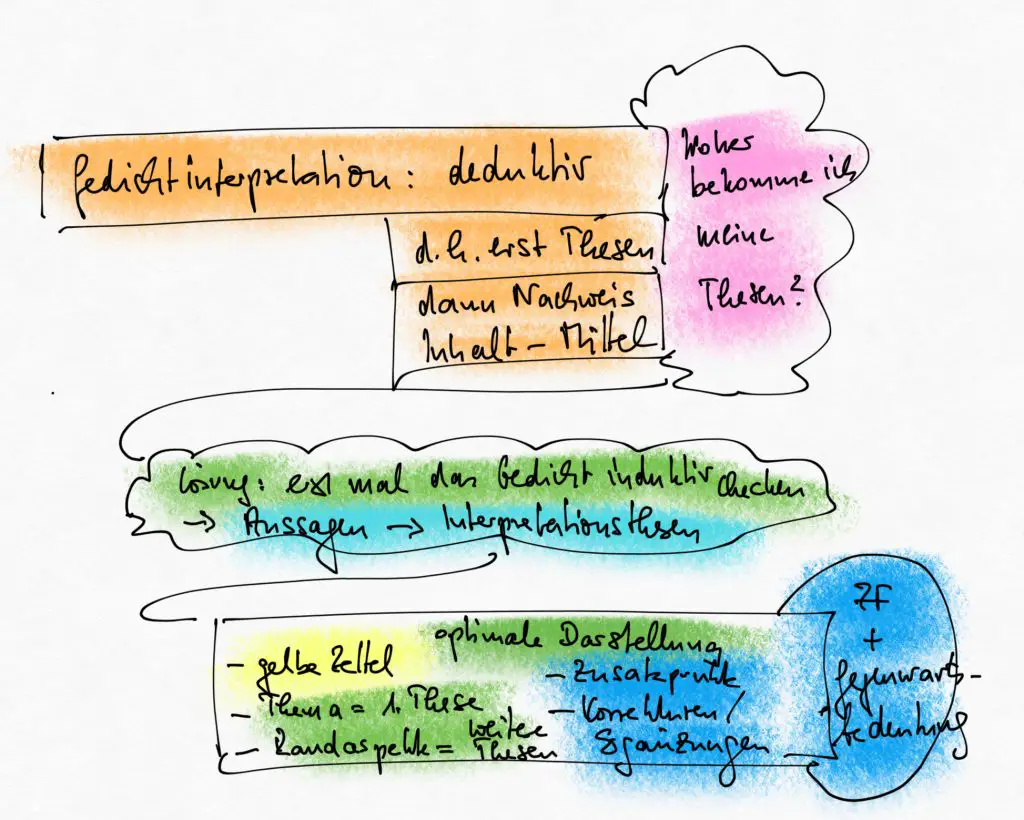 Gedichtinterpretation: deduktiv
d.h. erst Thesen
dann Nachweis
Inhalt – Mittel
Woher
bekomme ich
meine
Thesen?
Lösung: erst mal das Gedicht induktiv checken
→ Aussagen → Interpretationsthesen
optimale Darstellung
– gelbe Zettel
– Thema = 1. These
– Randaspekte = weitere Thesen
– Zusatzpunkte
– Korrekturen/
Ergänzungen
ZF
+
Gegenwarts-
bedeutung